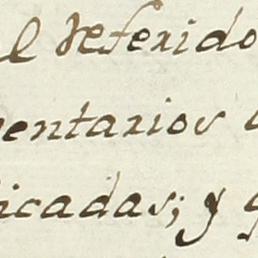 el referido
entarios
icadas; y